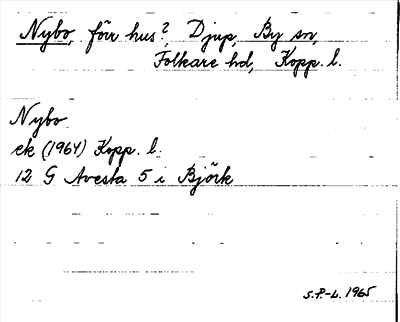 Nybo, förr hus?, Djup, By sn,
Folkare hd, Kopp. l.
Nybo
ek (1964) Kopp. l.
12 G Avesta 5 i Björk
S.P.-L. 1965